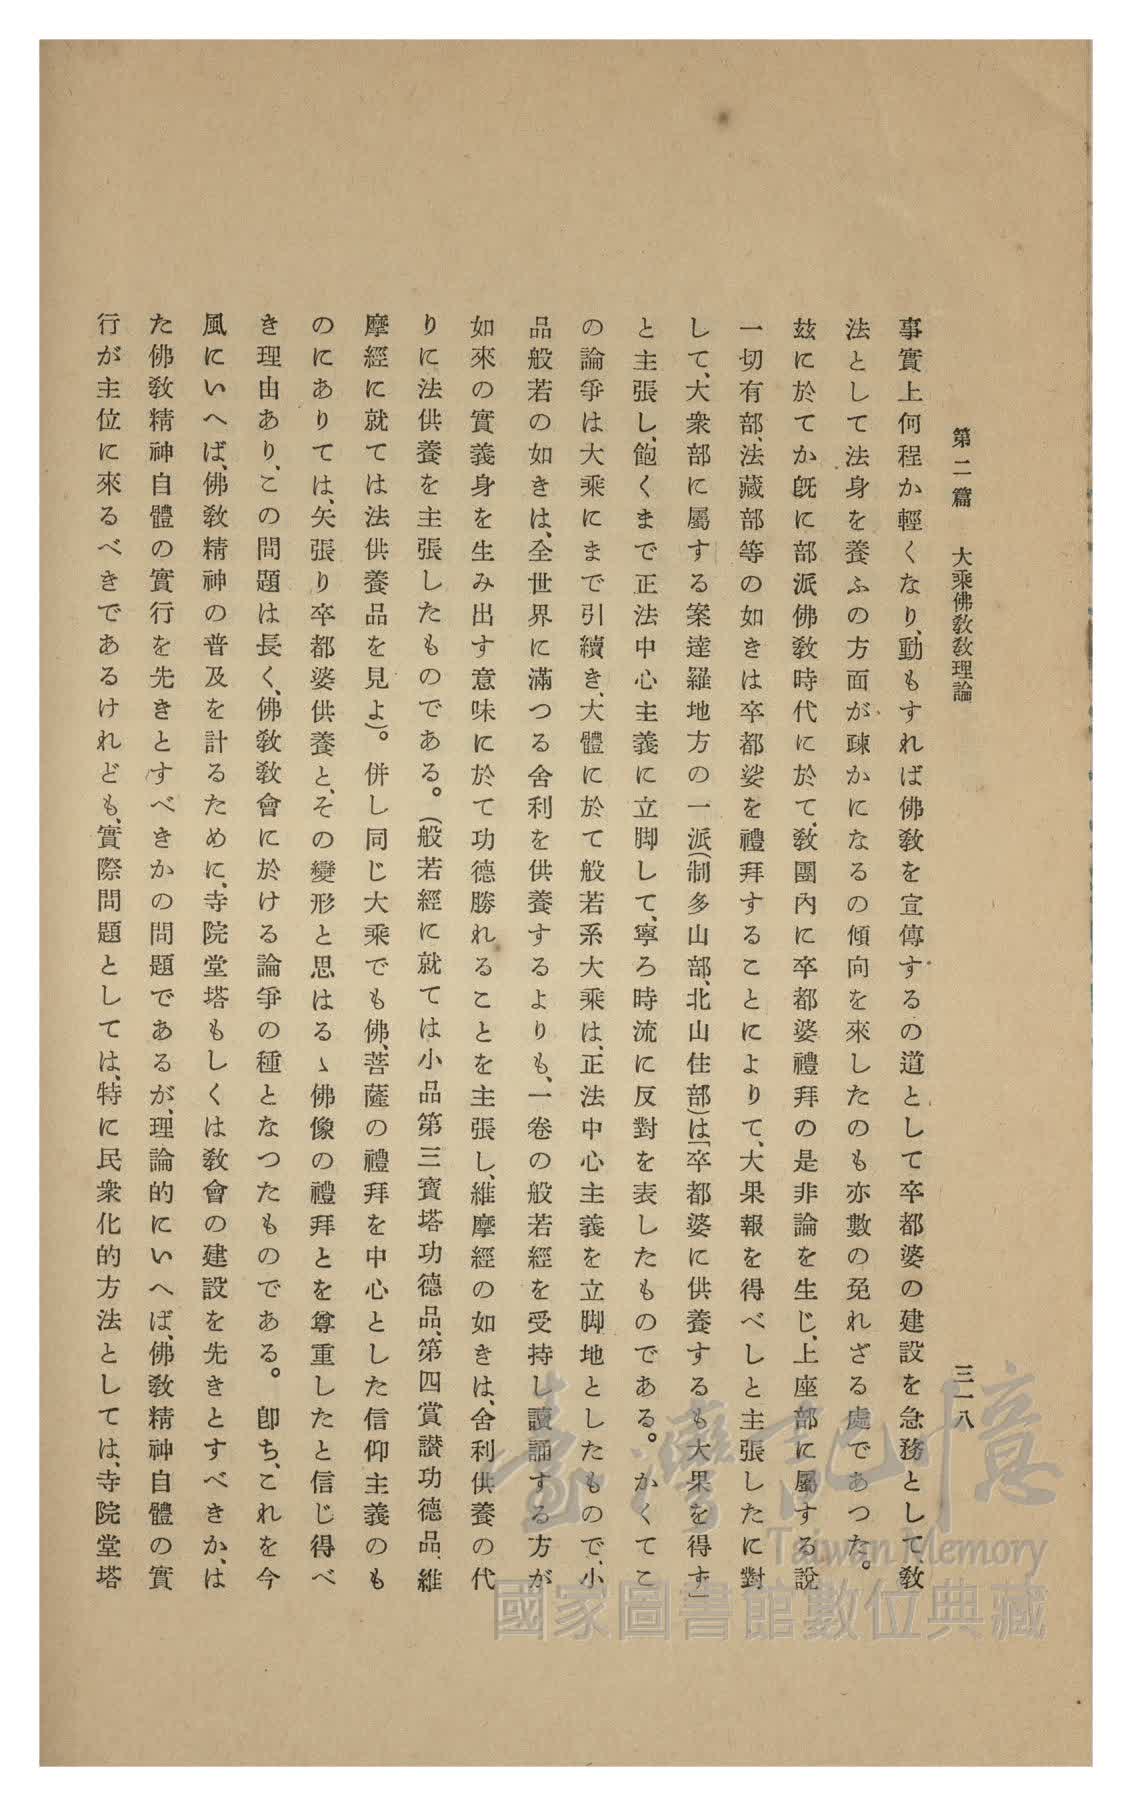 第二篇　大乘佛敎敎理論
三一八
事實上何程か輕くなり、動もすれば佛敎を宣傳するの道として卒都婆の建設を急務として敎
法として法身を養ふの方面が疎かになるの傾向を來したのも亦數の免れざる處であつた。
玆に於てか旣に部派佛敎時代に於て、敎團內に卒都婆禮拜の是非論を生じ、上座部に屬する說
一切有部、法藏部等の如きは卒都娑を禮拜することによりて、大果報を得べしと主張したに對
して、大衆部に屬する案達羅地方の一派(制多山部、北山住部)は「卒都婆に供養するも大果を得す」
と主張し、飽くまで正法中心主義に立脚して、寧ろ時流に反對を表したものである。かくてこ
の論爭は大乘にまで引續き、大體に於て般若系大乘は、正法中心主義を立脚地としたもので、小
品般若の如きは、全世界に滿つる舍利を供養するよりも、一卷の般若經を受持し讀誦する方が
如來の實義身を生み出す意味に於て功德勝れることを主張し、維摩經の如きは、舍利供養の代
りに法供養を主張したものである。(般若經に就ては小品第三寶塔功德品、第四賞讃功德品、維
摩經に就ては法供養品を見よ)。併し同じ大乘でも佛、菩薩の禮拜を中心とした信仰主義のも
のにありては、矢張り卒都婆供養と、その變形と思はるゝ佛像の禮拜とを尊重したと信じ得べ
き理由あり、この問題は長く、佛敎敎會に於ける論爭の種となつたものである。卽ち、これを今
風にいへば、佛敎精神の普及を計るために、寺院堂塔もしくは敎會の建設を先きとすべきか、は
た佛敎精神自體の實行を先きとすべきかの問題であるが、理論的にいへば、佛敎精神自體の實
行が主位に來るべきであるけれども、實際問題としては、特に民衆化的方法としては、寺院堂塔
臺灣記憶
Taiwan Memory
國家圖書館數位典藏